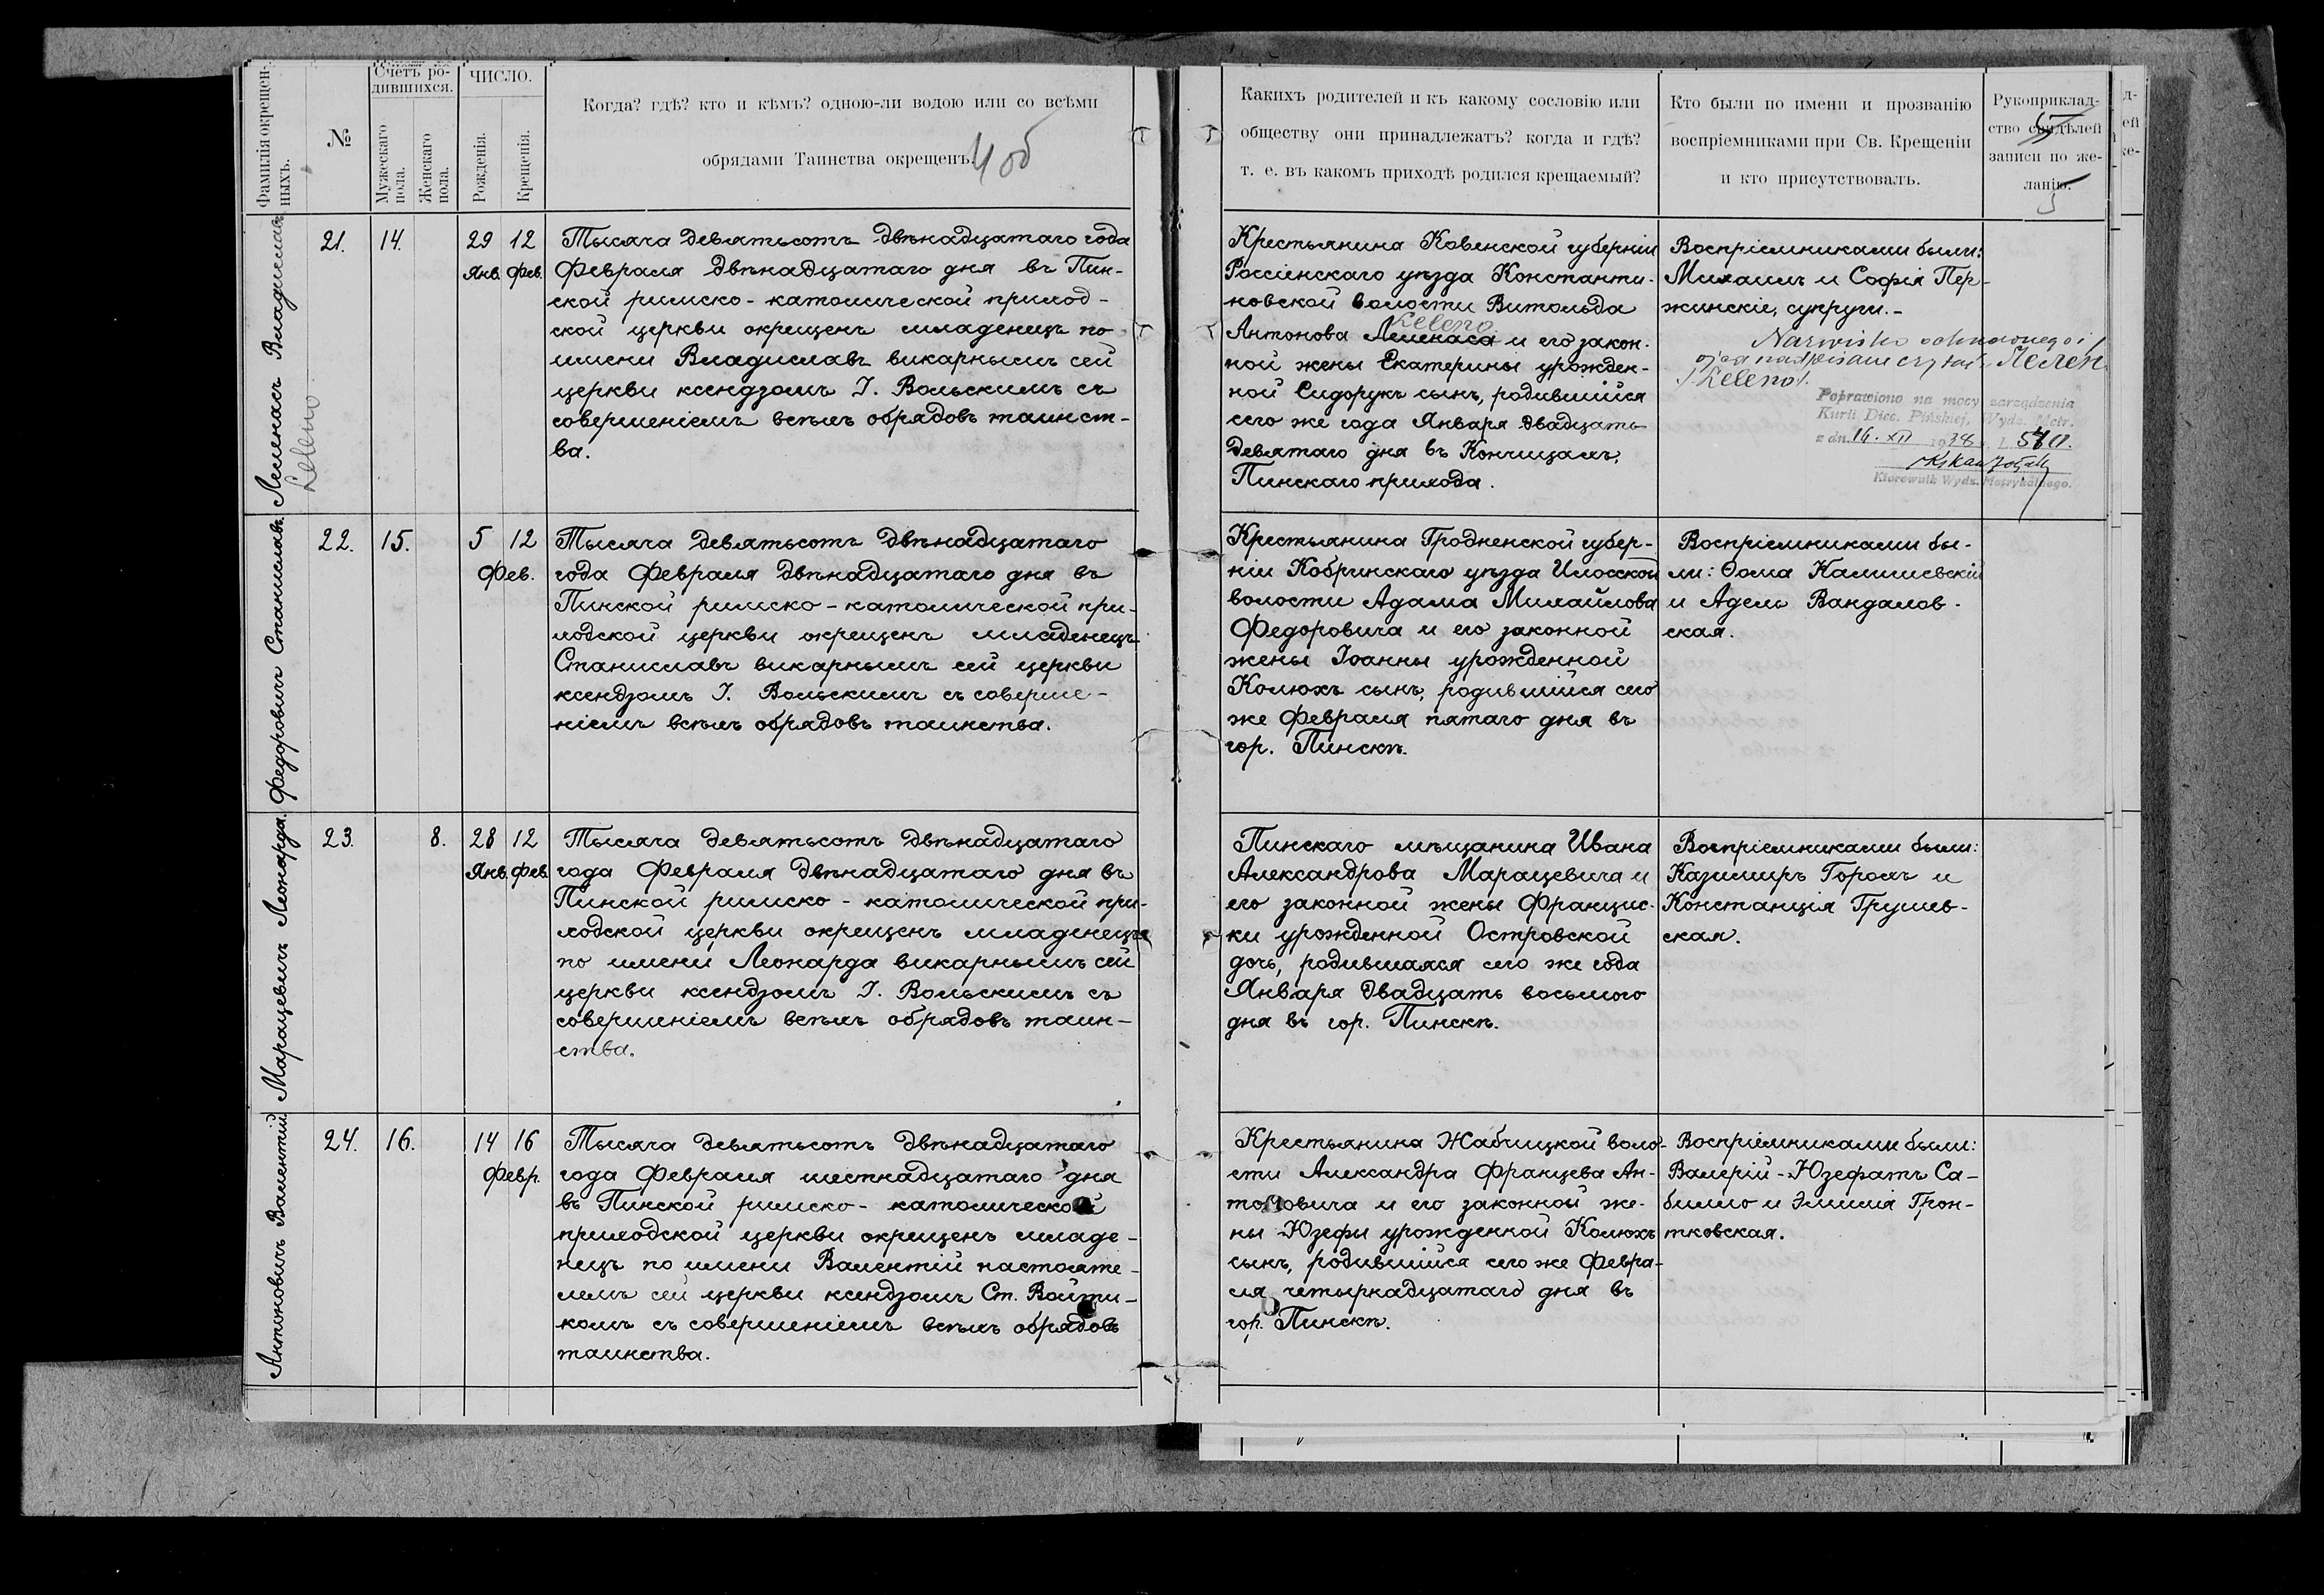 Фамилія окрещен-
ныхъ.
№
Счетъ ро-
дившихся.
Мужескаго
пола.
Женскаго
пола.
ЧИСЛО.
Рожденія.
Крещенія.
Когда? гдѣ? кто и кѣмъ? одною-ли водою или со всѣми
обрядами Таинства окрещенъ?
4 об
Какихъ родителей и къ какому сословію или
обществу они принадлежатъ? когда и гдѣ?
т. е. въ какомъ приходѣ родился крещаемый?
Кто были по имени и прозванію
воспріемниками при Св. Крещеніи
и кто присутствовалъ.
Рукоприклад-
ство свидѣлей
записи по же-
ланію.
5
Леленасъ Владиславъ
Leleno
21.
14.
29 12
Янв. Фев.
Тысяча девятьсотъ двѣнадцатаго года
Февраля двѣнадцатаго дня въ Пин-
ской римско-католической приход-
ской церкви окрещенъ младенецъ по
имени Владиславъ викарнымъ сей
церкви ксендзомъ І. Вольскимъ съ
совершеніемъ всѣхъ обрядовъ таинст-
ва.
Крестьянина Ковенской губерніи
Россіенскаго уѣзда Константи-
новской волости Витольда
Leleno
Антонова Леленаса и его закон-
ной жены Екатерины урожден-
ной Сидорукъ сынъ, родившійся
сего же года Января двадцать
девятаго дня въ Кончицахъ,
Пинскаго прихода.
Воспріемниками были:
Михаилъ и Софія Пер-
жинскіе, супруги.-
Nazwisko ochrzczonego i
ojca nadpisane czytać: Лелен
/Leleno/.
Poprawiono na mocy zarządzenia
Kurii Diec. Pińskiej, Wydz. Metr.
z dn. 16. XII 1938 L. 540.
Kierownik Wydz. Metrykalnego.
Федоровичъ Станиславъ.
22.
15.
5 12
Фев.
Тысяча девятьсотъ двѣнадцатаго
года Февраля двѣнадцатаго дня въ
Пинской римско-католической при-
ходской церкви окрещенъ младенецъ
Станиславъ викарнымъ сей церкви
ксендзомъ І. Вольскимъ съ соверше-
ніемъ всѣхъ обрядовъ таинства.
Крестьянина Гродненской губер-
ніи Кобринскаго уѣзда Илосской
волости Адама Михайлова
Федоровича и его законной
жены Іоанны урожденной
Колюхъ сынъ, родившійся сего
же Февраля пятаго дня въ
гор. Пинскѣ.
Воспріемниками бы-
ли: Ѳома Калишевскій
и Адель Вандалов-
ская.
Марацевичъ Леонарда.
23.
8.
28 12
Янв. Фев.
Тысяча девятьсотъ двѣнадцатаго
года Февраля двѣнадцатаго дня въ
Пинской римско-католической при-
ходской церкви окрещенъ младенецъ
по имени Леонарда викарнымъ сей
церкви ксендзомъ І. Вольскимъ съ
совершеніемъ всѣхъ обрядовъ таин-
ства.
Пинскаго мѣщанина Ивана
Александрова Марацевича и
его законной жены Францис-
ки урожденной Островской
дочь, родившаяся сего же года
Января двадцать восьмого
дня въ гор. Пинскѣ.
Воспріемниками были:
Казимиръ Горохъ и
Констанція Грушев-
ская.
Антоновичъ Валентій.
24.
16.
14 16
Февр.
Тысяча девятьсотъ двѣнадцатаго
года Февраля шестнадцатаго дня
въ Пинской римско-католической
приходской церкви окрещенъ младе-
нецъ по имени Валентій настояте-
лемъ сей церкви ксендзомъ Ст. Войти-
комъ съ совершеніемъ всѣхъ обрядовъ
таинства.
Крестьянина Жабчицкой воло-
сти Александра Францева Ан-
тоновича и его законной же-
ны Юзефы урожденной Колюхъ
сынъ, родившійся сего же Февра-
ля четырнадцатаго дня въ
гор. Пинскѣ.
Воспріемниками были:
Валерій-Юзефатъ Са-
билло и Эмилія Грон-
тковская.